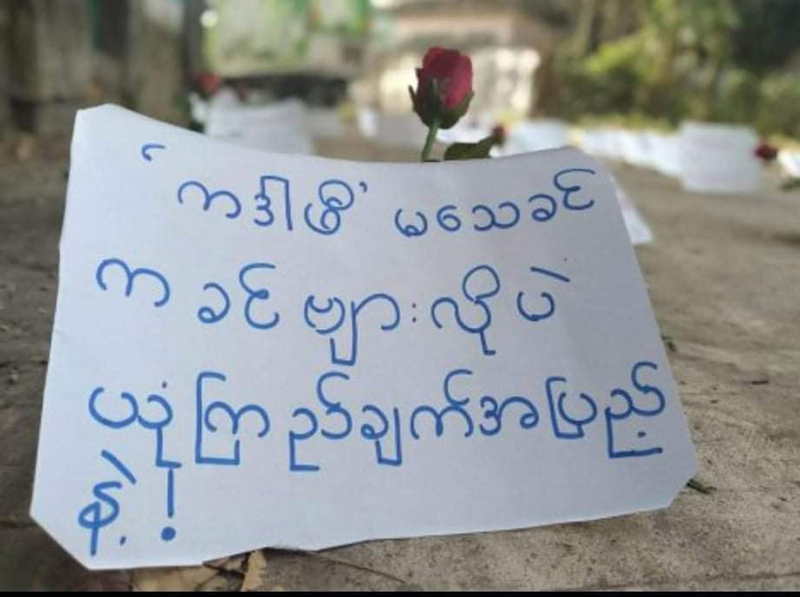 ‘ကဒါဖီ’ မသေခင်
က ခင်ဗျားလိုပဲ
ယုံကြည်ချက်အပြည့်
နဲ့!